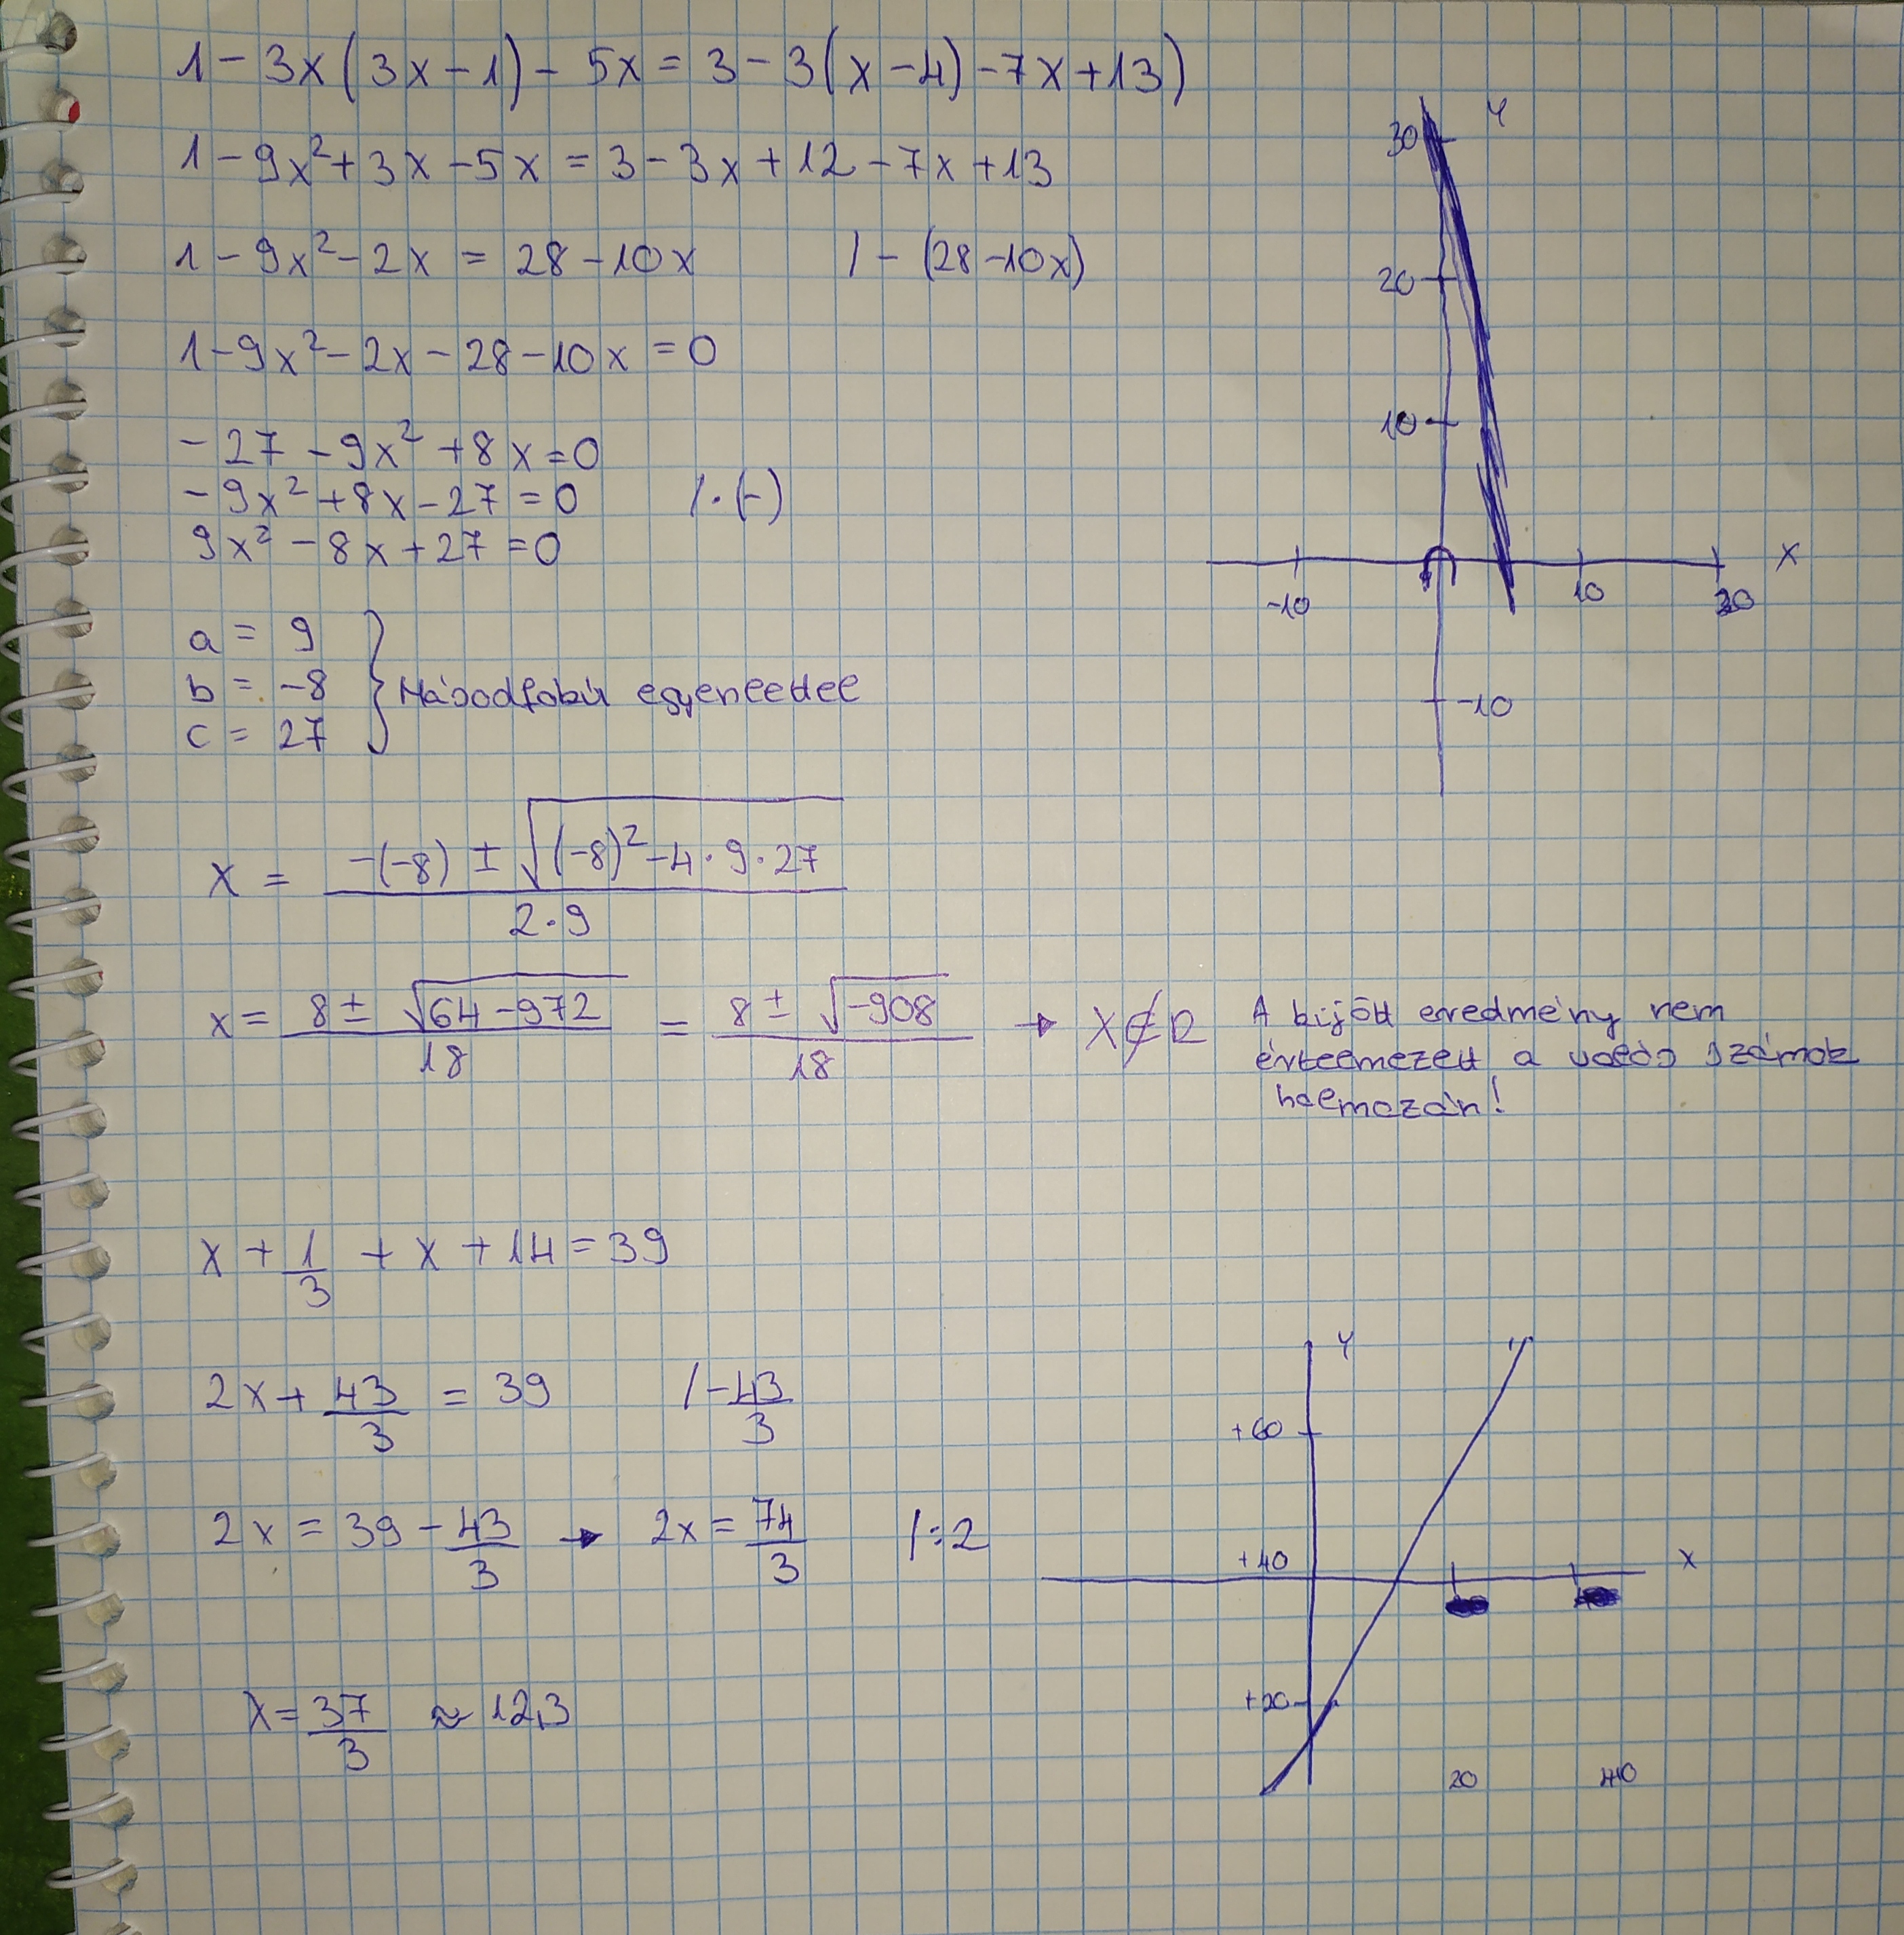 1 - 3x(3x-1) - 5x = 3 - 3(x-4) - 7x + 13)
1 - 9x² + 3x - 5x = 3 - 3x + 12 - 7x + 13
1 - 9x² - 2x = 28 - 10x / - (28-10x)
1 - 9x² - 2x - 28 - 10x = 0
- 27 - 9x² + 8x = 0
- 9x² + 8x - 27 = 0 / · (-)
9x² - 8x + 27 = 0
a = 9
b = -8
c = 27
} Másodfokú egyenlettel
x = (-(-8) ± √((-8)² - 4 · 9 · 27)) / (2 · 9)
x = (8 ± √(64 - 972)) / 18 = (8 ± √(-908)) / 18 → x ∉ R
A kijött eredmény nem
értelmezett a valós számok
halmazán!
Y
30
20
10
-10
10
20
X
-10
x + 1/3 + x + 14 = 39
2x + 43/3 = 39 / - 43/3
2x = 39 - 43/3 → 2x = 74/3 / :2
x = 37/3 ≈ 12,3
Y
+60
+40
X
+20
20
40